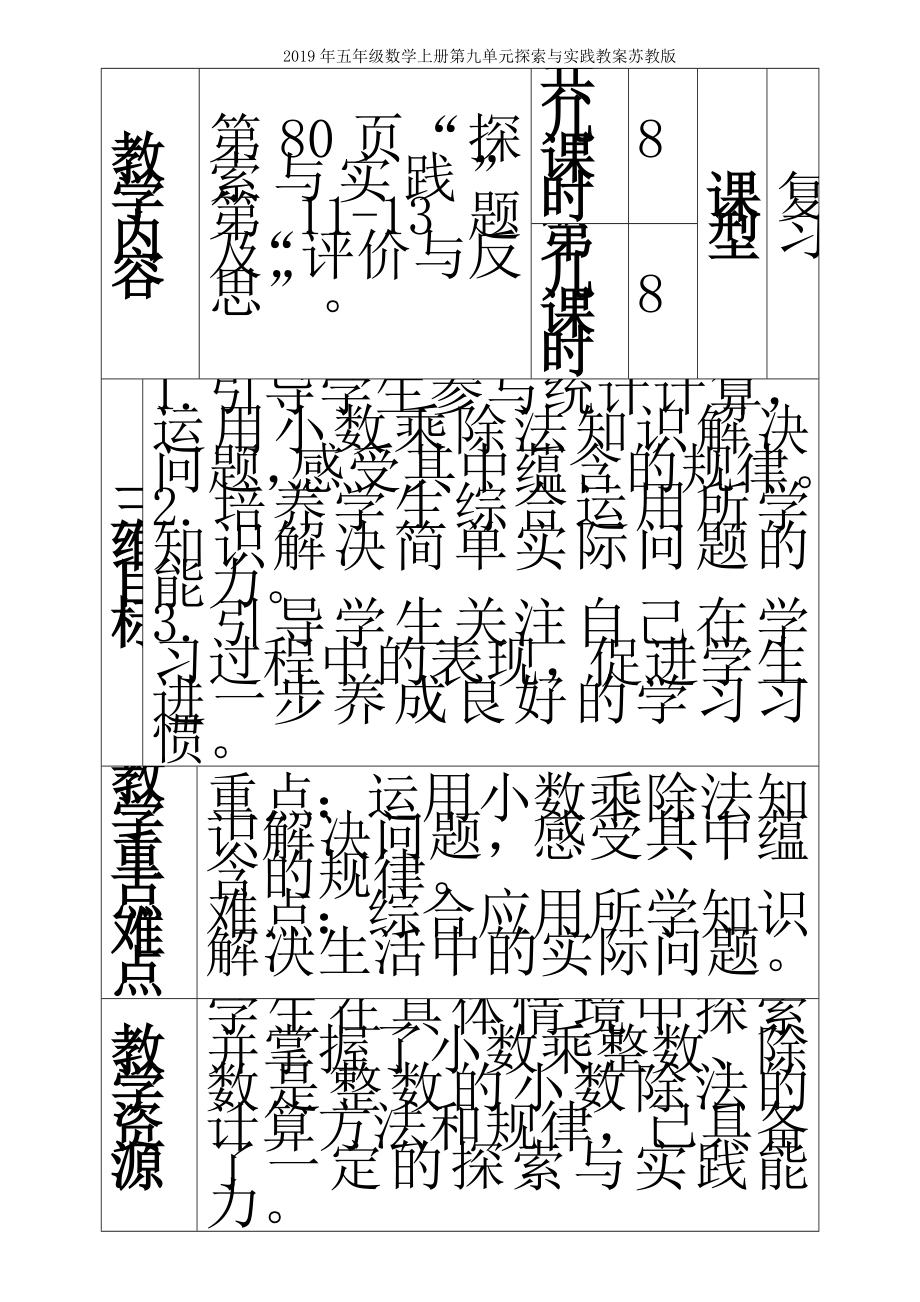 2019年五年级数学上册第九单元探索与实践教案苏教版
教学内容
第80页“探
索与实践”
第11-13题
及“评价与反
思”。
共几课时
8
课型
复习
第几课时
8
三维目标
1.引导学生参与统计计算，
运用小数乘除法知识解决
问题,感受其中蕴含的规律。
2.培养学生综合运用所学
知识解决简单实际问题的
能力。
3.引导学生关注自己在学
习过程中的表现，促进学生
进一步养成良好的学习习
惯。
教学重点难点
重点：运用小数乘除法知
识解决问题，感受其中蕴
含的规律。
难点：综合应用所学知识
解决生活中的实际问题。
教学资源
学生在具体情境中探索
并掌握了小数乘整数、除
数是整数的小数除法的
计算方法和规律，已具备
了一定的探索与实践能
力。